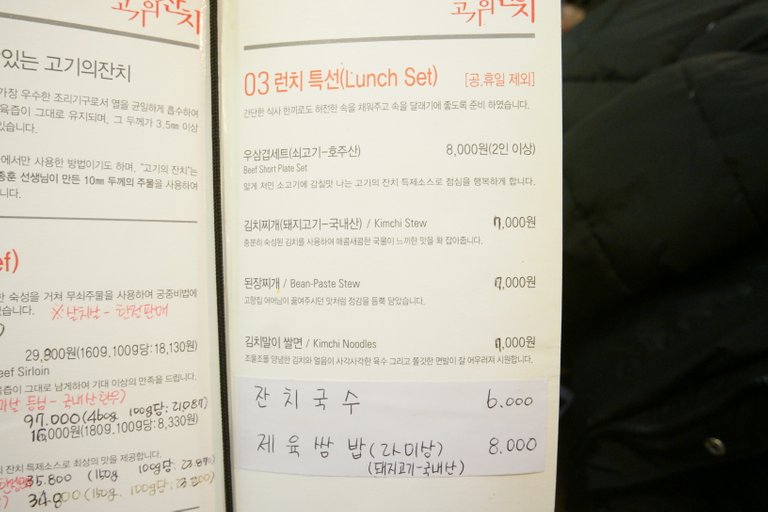 있는 고기의잔치
가장 우수한 조리기구로서 열을 균일하게 흡수하여
육즙이 그대로 유지되며, 그 두께가 3.5㎜ 이상
있습니다.
에서만 사용한 방법이기도 하며, "고기의 잔치"는
종훈 선생님이 만든 10㎜ 두께의 주물을 사용하여
니다.
ef)
한 숙성을 거쳐 무쇠주물을 사용하여 궁중비법에
습니다.
※날치살 - 한정판매
29,900원(160g.100g당:18,130원)
eef Sirloin
육즙이 그대로 남게하여 기대 이상의 만족을 드립니다.
등심 - 국내산한우)
97.000(460g 100g당:21087)
16,000원(180g.100g당:8,330원)
의 잔치 특제소스로 최상의 맛을 제공합니다.
35.800 (150g 100g당:23.870)
34.800 (150g
고기의잔치
03 런치 특선(Lunch Set) [공.휴일 제외]
간단한 식사 한끼로도 허전한 속을 채워주고 속을 달래기에 좋도록 준비 하였습니다.
우삼겹세트(쇠고기-호주산) 8,000원(2인 이상)
Beef Short Plate Set
얇게 저민 소고기에 감칠맛 나는 고기의 잔치 특제소스로 점심을 행복하게 합니다.
김치찌개(돼지고기-국내산) / Kimchi Stew 7,000원
충분히 숙성된 김치를 사용하여 매콤새콤한 국물이 느끼한 맛을 확 잡아줍니다.
된장찌개 / Bean-Paste Stew 7,000원
고향집 어머님이 끓여주시던 맛처럼 정감을 듬뿍 담았습니다.
김치말이 쌀면 / Kimchi Noodles 7,000원
조물조물 양념한 김치와 얼음이 사각사각한 육수 그리고 쫄깃한 면발이 잘 어우러져 시원합니다.
잔치국수 6.000
제육쌈밥(라미상) 8.000
(돼지고기-국내산)